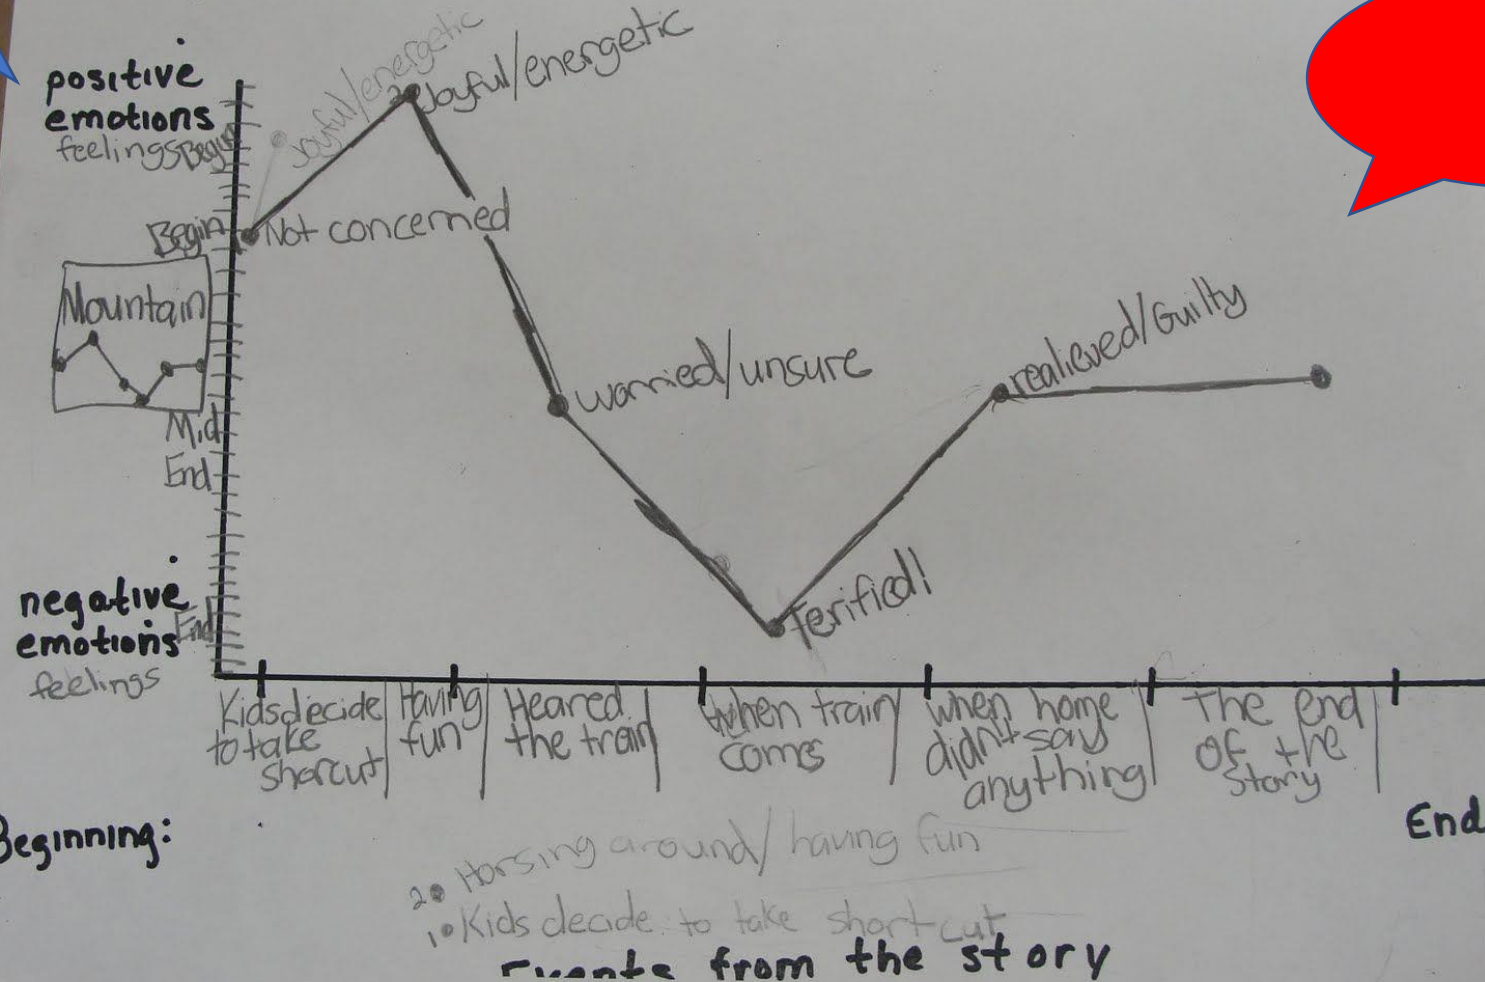 positive
emotions
feelings
Begin
Joyful/energetic
Joyful/energetic
Begin
Not concerned
Mountain
worried/unsure
realieved/Guilty
Mid
End
Terified!
negative
emotions
End
feelings
Kids decide
to take
shorcut
Having
fun
Heared
the train
When train
comes
when home
didn't say
anything
The end
of the
Story
Beginning:
End
2. Horsing around/having fun
1. Kids decide to take shortcut
Events from the story